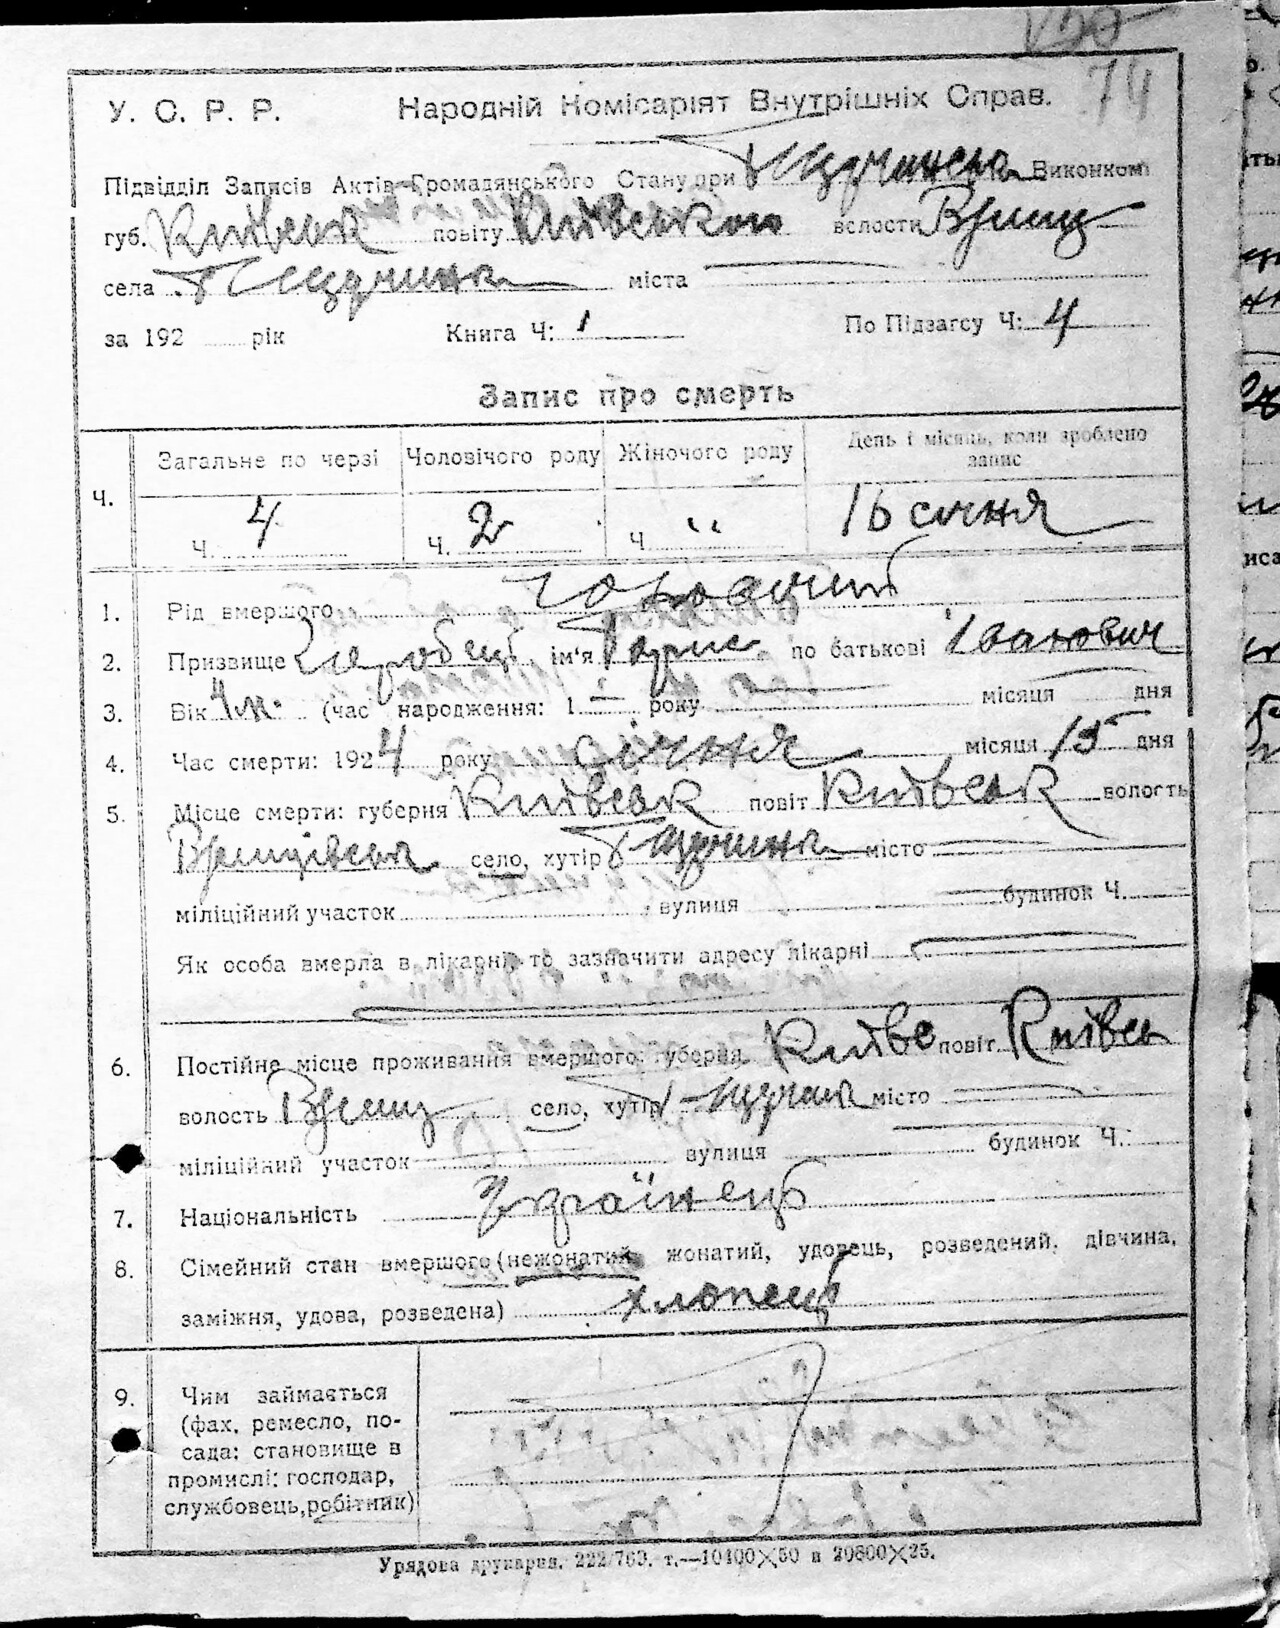 74
У. С. Р. Р. Народній Комісаріят Внутрішніх Справ.
Підвідділ Записів Актів Громадянського Стану при Виконкомі
губ. Київськ повіту Київського волости
села міста
за 192 рік Книга Ч: 1 По Підзагсу Ч: 4
Запис про смерть
Ч. Загальне по черзі Чоловічого роду Жіночого роду День і місяць, коли зроблено запис
Ч. 4 Ч. 2 Ч " 16 січня
1. Рід вмершого чоловічий
2. Призвище ім'я по батькові Іванович
3. Вік (час народження: 1 року місяця дня
4. Час смерти: 1924 року січня місяця 15 дня
5. Місце смерти: губерня Київськ повіт Київськ волость
село, хутір місто
міліційний участок вулиця будинок Ч.
Як особа вмерла в лікарні, то зазначити адресу лікарні
6. Постійне місце проживання вмершого: губерня Київс повіт Київсь
волость село, хутір місто
міліційний участок вулиця будинок Ч.
7. Національність Українець
8. Сімейний стан вмершого (нежонатий, жонатий, удовець, розведений, дівчина,
заміжня, удова, розведена) хлопець
9. Чим займається
(фах, ремесло, по-
сада: становище в
промислі: господар,
службовець, робітник)
Урядова друкарня. 222/763. т.—10400×50 и 20800×25.